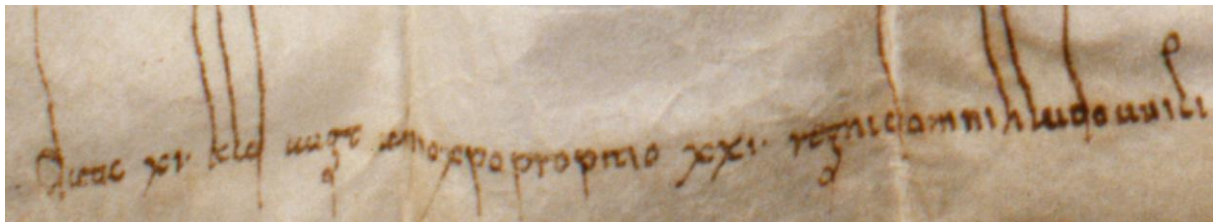 Data xı· kld augt anno xpo propitio xxı· regni domni hludouuici